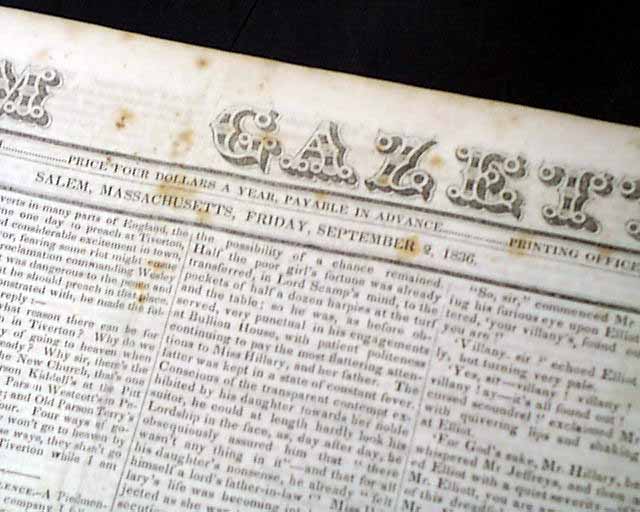 M GAZET
PRICE FOUR DOLLARS A YEAR, PAYABLE IN ADVANCE PRINTING OFFICE
SALEM, MASSACHUSETTS, FRIDAY, SEPTEMBER 2, 1836.
verts in many parts of England, the
one day, to preach at Tiverton,
considerable excitement in town,
fearing some riot might
roclamation commanding Wesley
was dangerous to the peace and
he should preach in that place.
onstrated with, he made the fol-
reply:—
what reason there can be for
in Tiverton? Why do we
of going to heaven when
ready? Why sir, there's the
the New Church, that's one
rson Kiddall's at the Pitt
Parson Westcott's
and Old Parson Terry's
our. Four ways of go-
won't go to heaven by
ways, they shan't go
Tiverton while I am
LENCE.—A Piedmon-
company
the possibility of a chance remained.
Half the poor girl's fortune was already
transferred, in Lord Scamp's mind, to the
pockets of half a dozen harpies at the turf
and the table; so he was, as before ob-
served, very punctual in his engagements
at Bullion House, with patient politeness
continuing to pay the most flattering atten-
tions to Miss Hillary, and her father. The
latter was kept in a state of constant fever.
Conscious of the transparent contempt ex-
hibited by his daughter towards her noble
suitor, he could at length hardly look his
Lordship in the face, as, day after day, he
obsequiously assured him that "there
wasn't any thing in it"—and that for all
his daughter's nonsense, he already "felt
himself a lord's father-in-law." Miss
lary's life was becoming
jected as she was
"So, sir," commenced Mr
ing his furious eye upon Elliot
tered, 'your villany's, found
you are!'
'Villany, sir?' echoed Elliot
ly, but turning very pale.
'Yes, sir—villany! villany!
villany! ay—it's all found out!
scoundrel!' exclaimed Mr
with quivering lips and shaking
at Elliot.
'For God's sake, Mr. Hillary, be
whispered Mr Jeffreys, and then
ed Elliot with a quiet severity—
Mr. Elliott, you are
of this